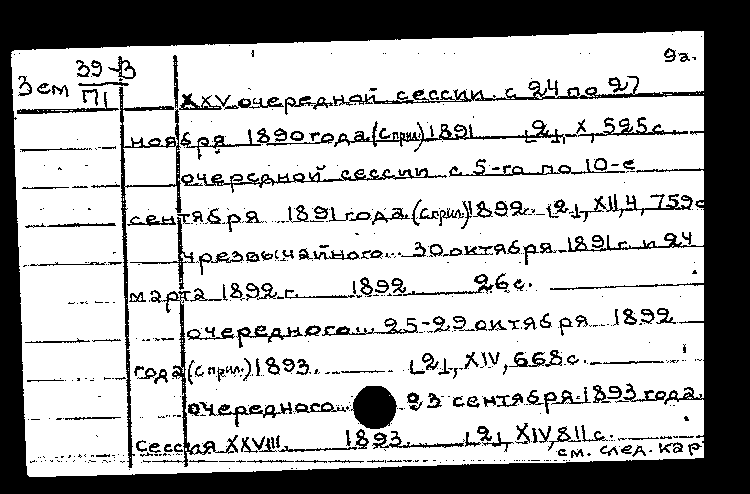 9а.
Зем 39-З
П1
XXV очередной сессии с 24 по 27
ноября 1890 года (с прил) 1891 [2], X, 525 с.
очередной сессии с 5-го по 10-е
сентября 1891 года (с прил.) 1892. [2], XII, 4, 759 с
чрезвычайного... 30 октября 1891 г. и 24
марта 1892 г. 1892. 26 с.
очередного... 25-29 октября 1892
года (с прил.) 1893. [2], XIV, 668 с.
очередного... 23 сентября 1893 года.
Сессия XXVIII. 1893. [2], XIV, 811 с.
см. след. кар